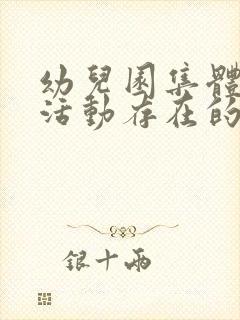 幼兒園集體
活動存在的
銀十兩